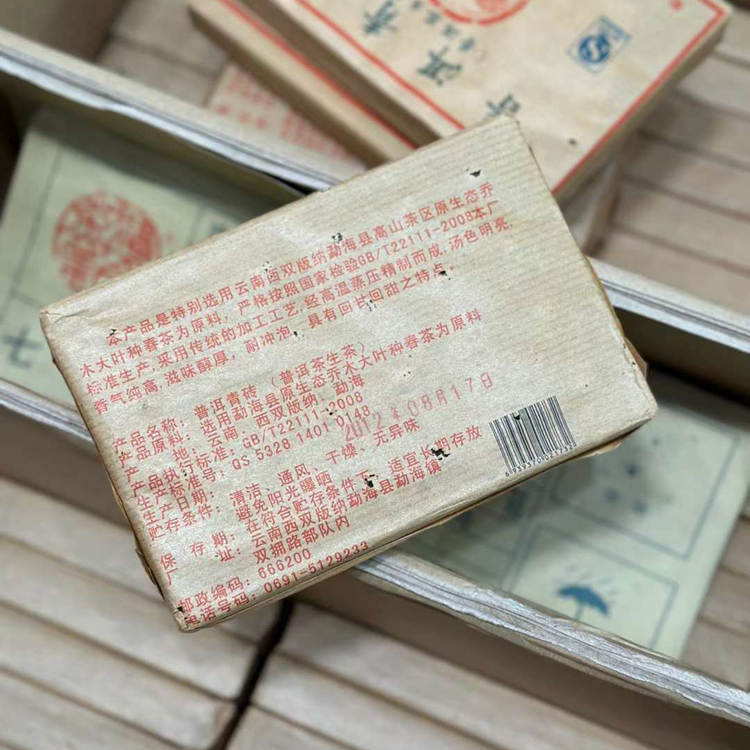 本产品是特别选用云南西双版纳勐海县高山茶区原生态乔
木大叶种春茶为原料，严格按照国家检验GB/T22111-2008本厂
标准生产，采用传统的加工工艺，经高温蒸压精制而成，汤色明亮，
香气纯高，滋味醇厚，耐冲泡，具有回甘回甜之特点。
产品名称：普洱青砖（普洱茶生茶）
产品原料：选用勐海县原生态乔木大叶种春茶为原料
产地：云南、西双版纳、勐海
执行标准：GB/T22111-2008
QS 5328 1401 0148
生产日期：2012年08月17日
贮存条件：清洁、通风、干燥、无异味
避免阳光曝晒
保存期：在符合贮存条件下，适宜长期存放
厂址：云南西双版纳勐海县勐海镇
双拥路部队内
邮政编码：666200
电话号码：0691-5129233
普洱青
七